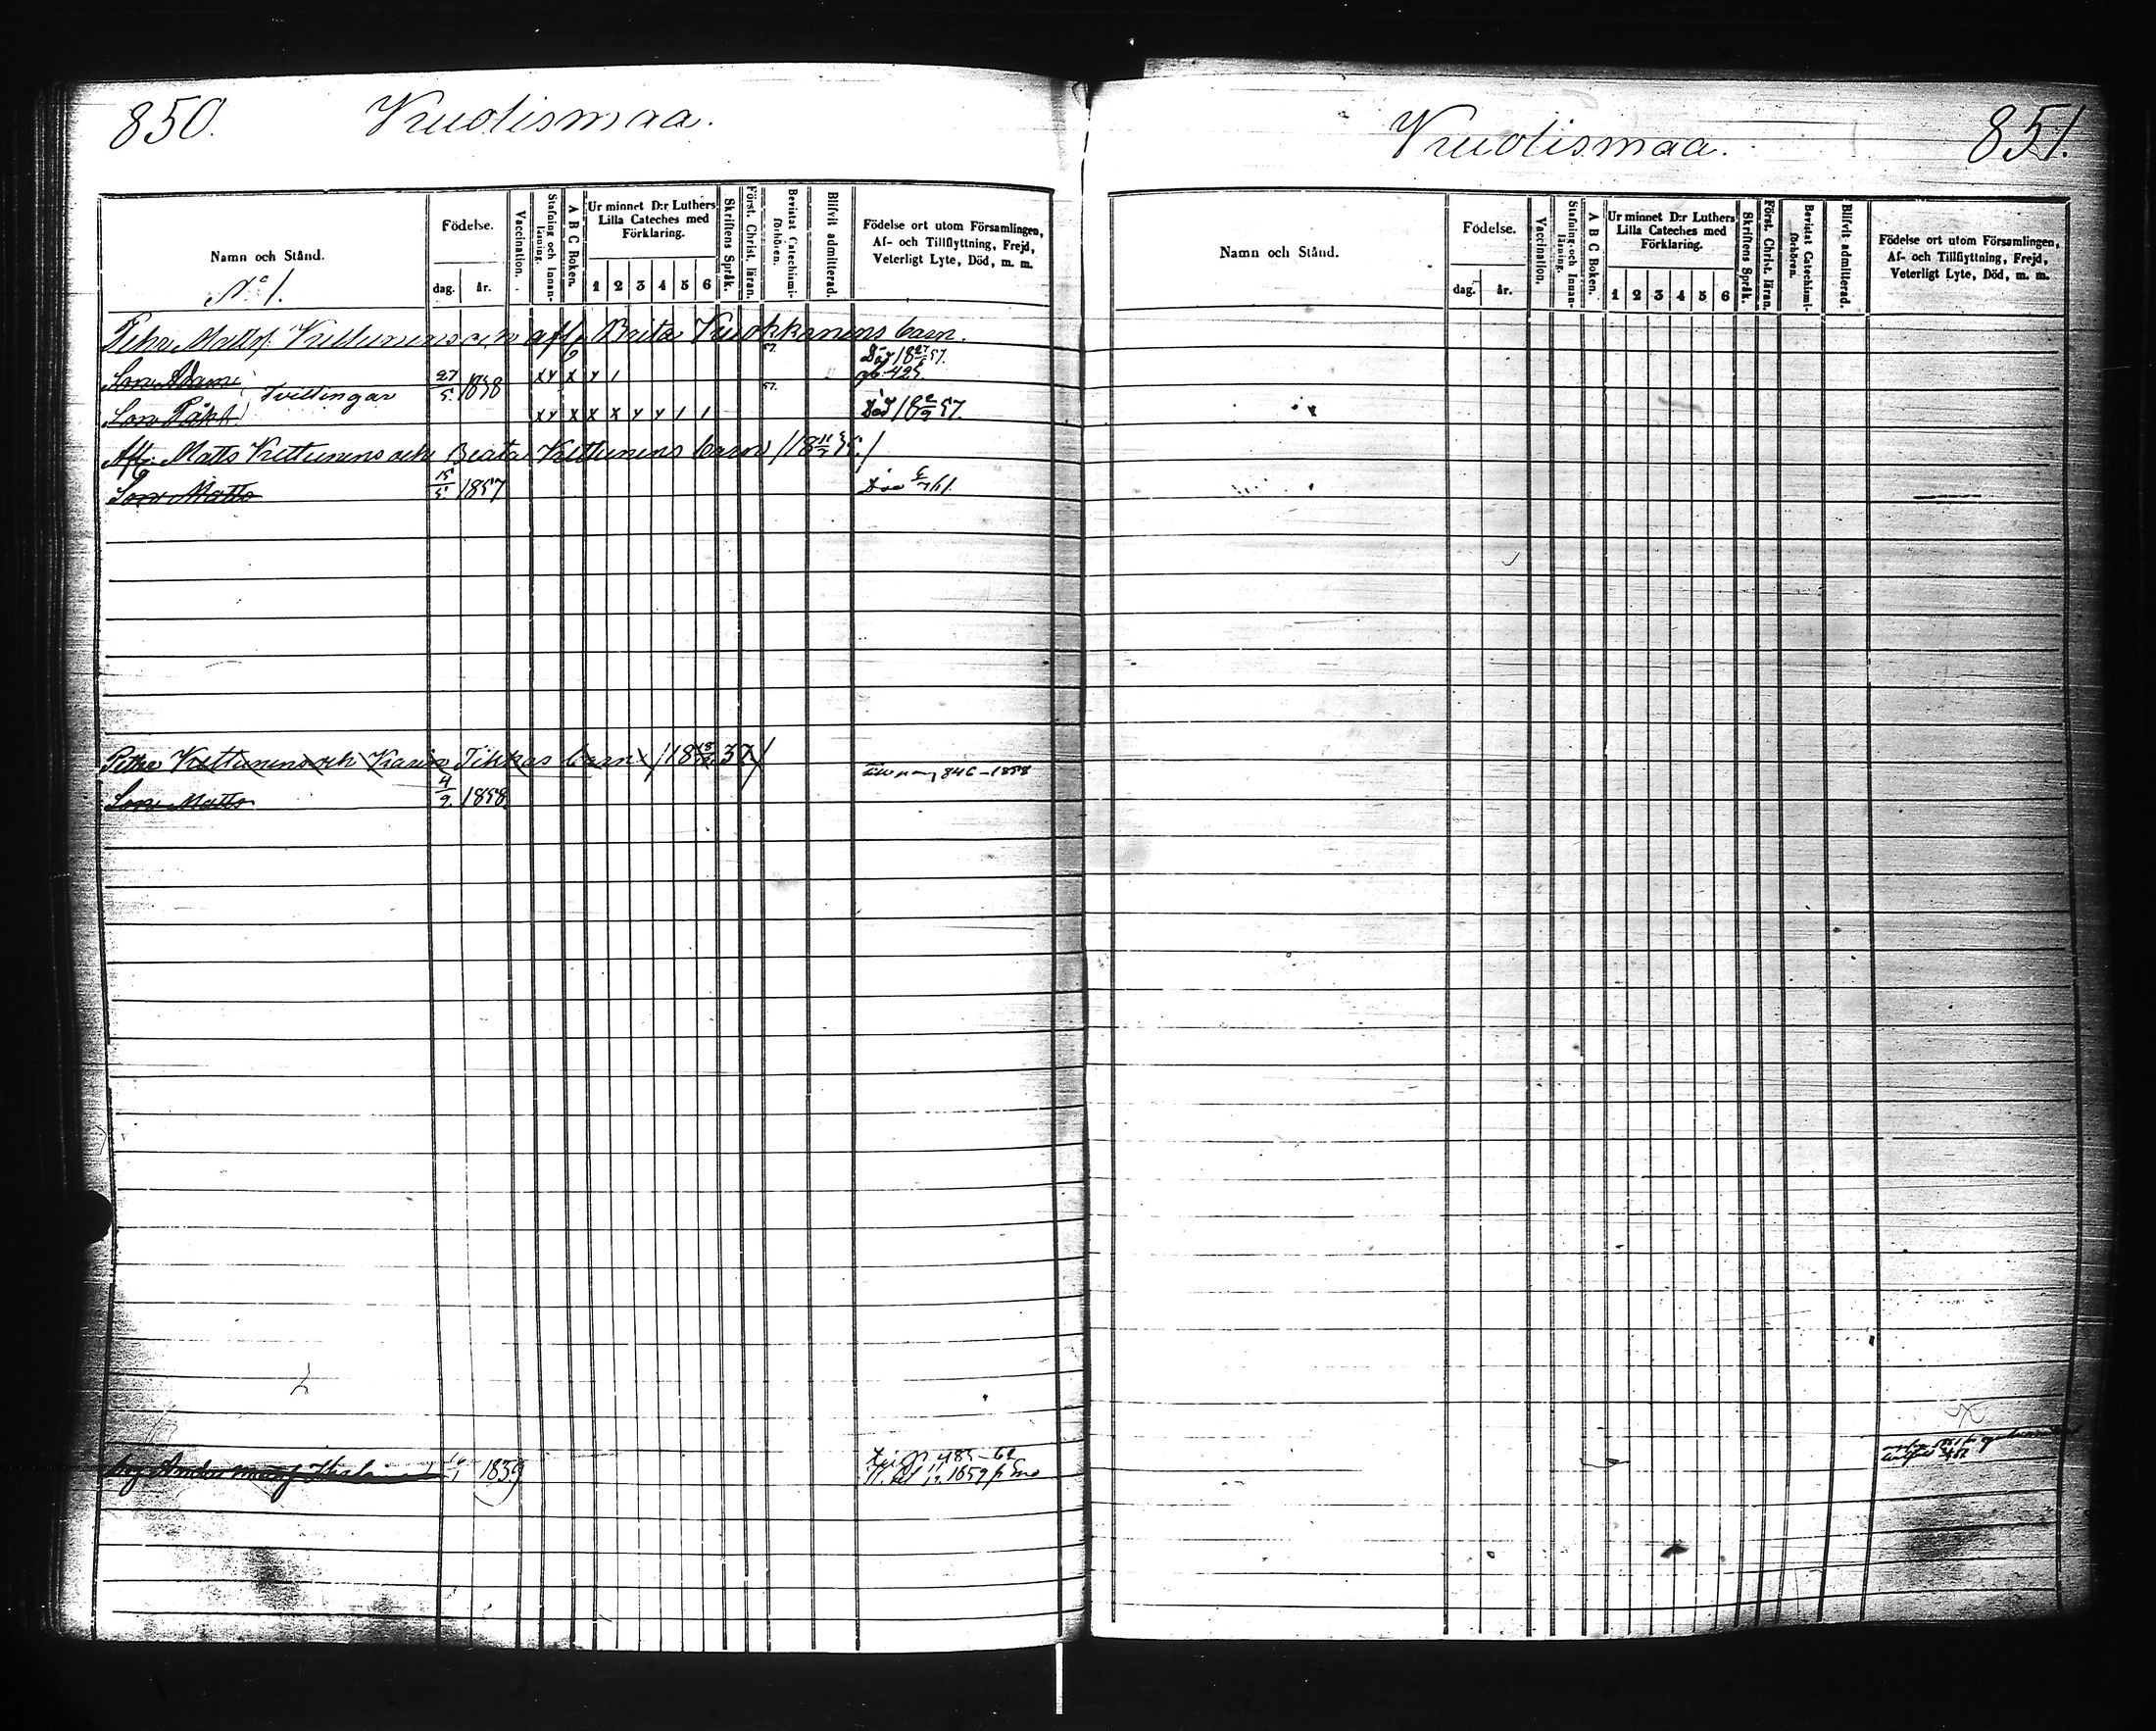 850. Vuolismaa.
Namn och Stånd.
N:o 1.
Födelse.
dag.
år.
Vaccination.
Stafning och Innanläsning.
A B C Boken.
Ur minnet D:r Luthers
Lilla Cateches med
Förklaring.
1 2 3 4 5 6
Skriftens Språk.
Först. Christ. läran.
Bevistat Catechismiförhören.
Blifvit admitterad.
Födelse ort utom Församlingen,
Af- och Tillflyttning, Frejd,
Veterligt Lyte, Död, m. m.
Pehr Mattsf. Kettunens och afl. Brita Kuokkanens barn.
Son Adam Tvillingar 27/5 1838 xy x y 1 57. Död 18 27/ 57.
Son Påhl xy x x x y y 1 1 57. Död 18 2/9 57.
Afl. Matts Kettunens och Beata Kettunens barn
Son Matts 15/5 1857 Död 61.
Petter Kettunens och Karin Tikkas barn
846-1858
Son Matts 4/9 1858
Anders 1839
485-62
851.
Vuolismaa.
Namn och Stånd.
Födelse.
dag.
år.
Vaccination.
Stafning och Innanläsning.
A B C Boken.
Ur minnet D:r Luthers
Lilla Cateches med
Förklaring.
1 2 3 4 5 6
Skriftens Språk.
Först. Christ. läran.
Bevistat Catechismiförhören.
Blifvit admitterad.
Födelse ort utom Församlingen,
Af- och Tillflyttning, Frejd,
Veterligt Lyte, Död, m. m.